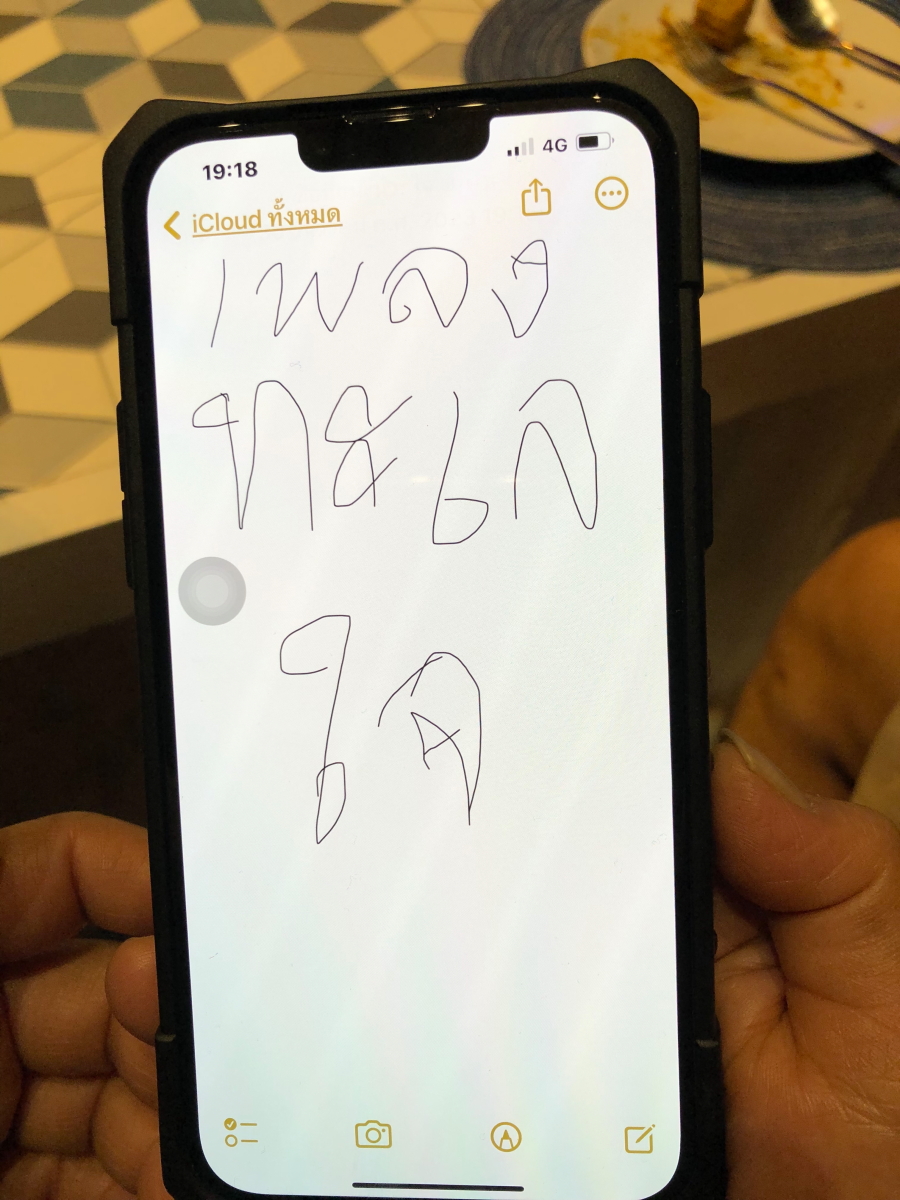 19:18 4G
iCloud ทั้งหมด
เพลง
ทะเล
ใจ